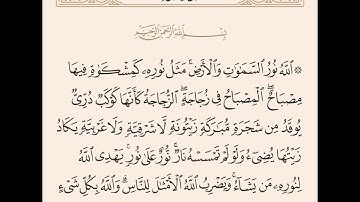 بِسْمِ اللَّهِ الرَّحْمَٰنِ الرَّحِيمِ
۞ اللَّهُ نُورُ السَّمَٰوَٰتِ وَالْأَرْضِ ۚ مَثَلُ نُورِهِ كَمِشْكَوٰةٍ فِيهَا
مِصْبَاحٌ ۖ الْمِصْبَاحُ فِي زُجَاجَةٍ ۖ الزُّجَاجَةُ كَأَنَّهَا كَوْكَبٌ دُرِّيٌّ
يُوقَدُ مِن شَجَرَةٍ مُّبَٰرَكَةٍ زَيْتُونَةٍ لَّا شَرْقِيَّةٍ وَلَا غَرْبِيَّةٍ يَكَادُ
زَيْتُهَا يُضِيءُ وَلَوْ لَمْ تَمْسَسْهُ نَارٌ ۚ نُّورٌ عَلَىٰ نُورٍ ۗ يَهْدِي اللَّهُ
لِنُورِهِ مَن يَشَاءُ ۚ وَيَضْرِبُ اللَّهُ الْأَمْثَٰلَ لِلنَّاسِ ۗ وَاللَّهُ بِكُلِّ شَيْءٍ